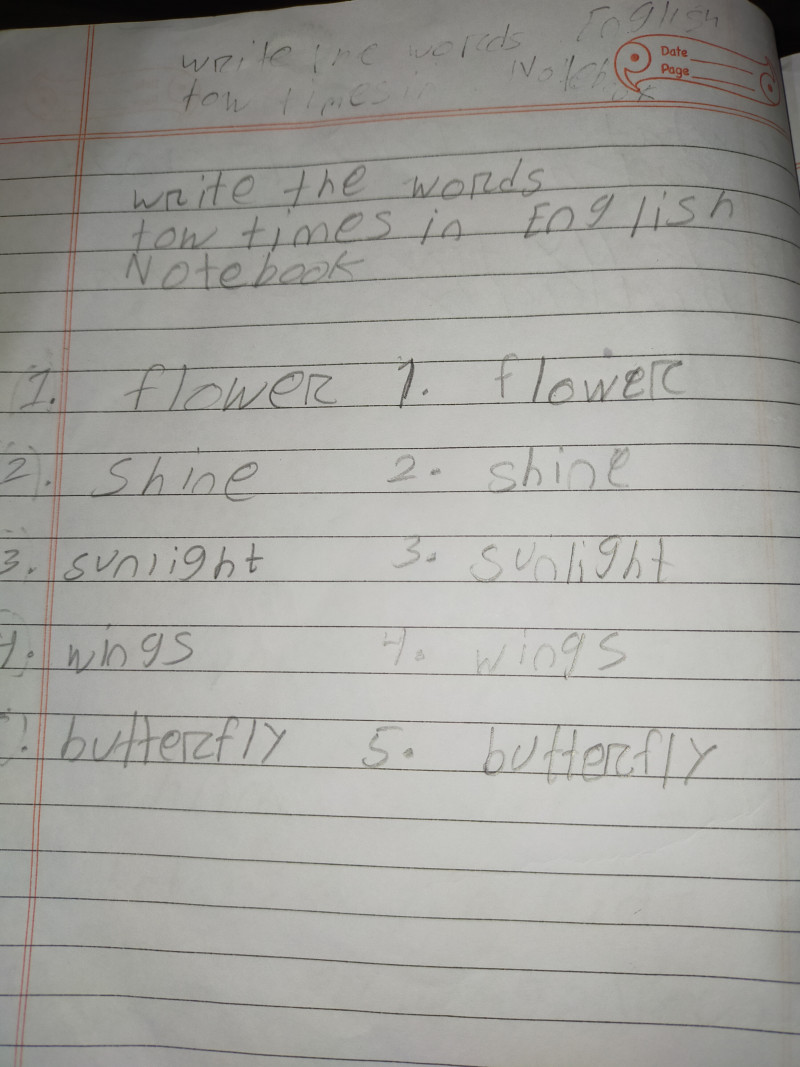 write the words English
tow times in Notebook
Date
Page
write the words
tow times in English
Notebook
1. flower 1. flower
2. Shine 2. shine
3. sunlight 3. sunlight
4. wings 4. wings
5. butterfly 5. butterfly